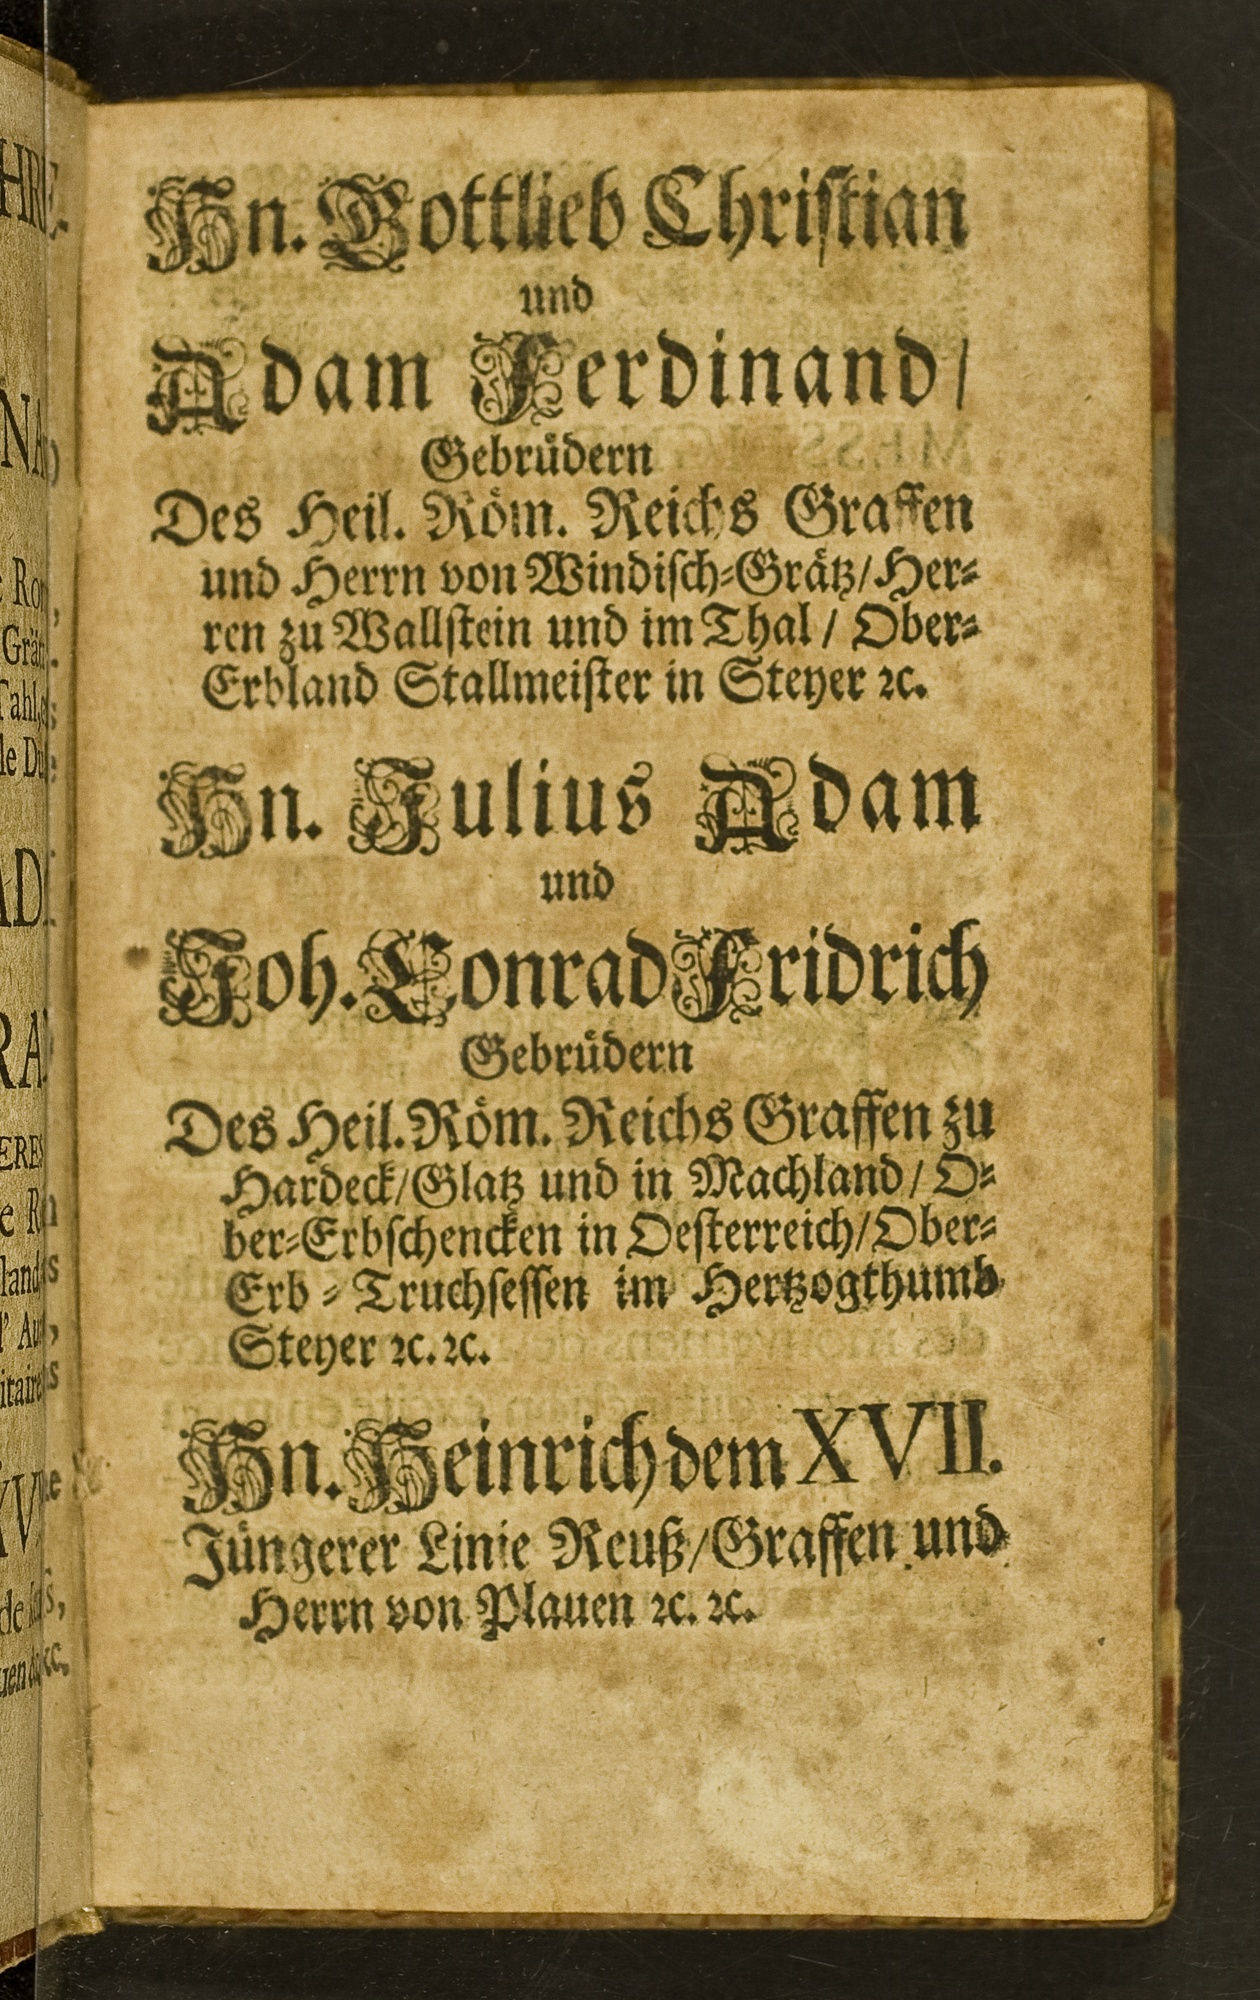 Hn. Gottlieb Christian
und
Adam Ferdinand/
Gebrüdern
Des Heil. Röm. Reichs Graffen
und Herrn von Windisch-Grätz/Her-
ren zu Wallstein und im Thal / Ober-
Erbland Stallmeister in Steyer ꝛc.
Hn. Julius Adam
und
Joh. Conrad Fridrich
Gebrüdern
Des Heil. Röm. Reichs Graffen zu
Hardeck/Glatz und in Machland / O-
ber-Erbschencken in Oesterreich/Ober-
Erb-Truchsessen im Hertzogthumb
Steyer ꝛc. ꝛc.
Hn. Heinrich dem XVII.
Jüngerer Linie Reuß/Graffen und
Herrn von Plauen ꝛc. ꝛc.